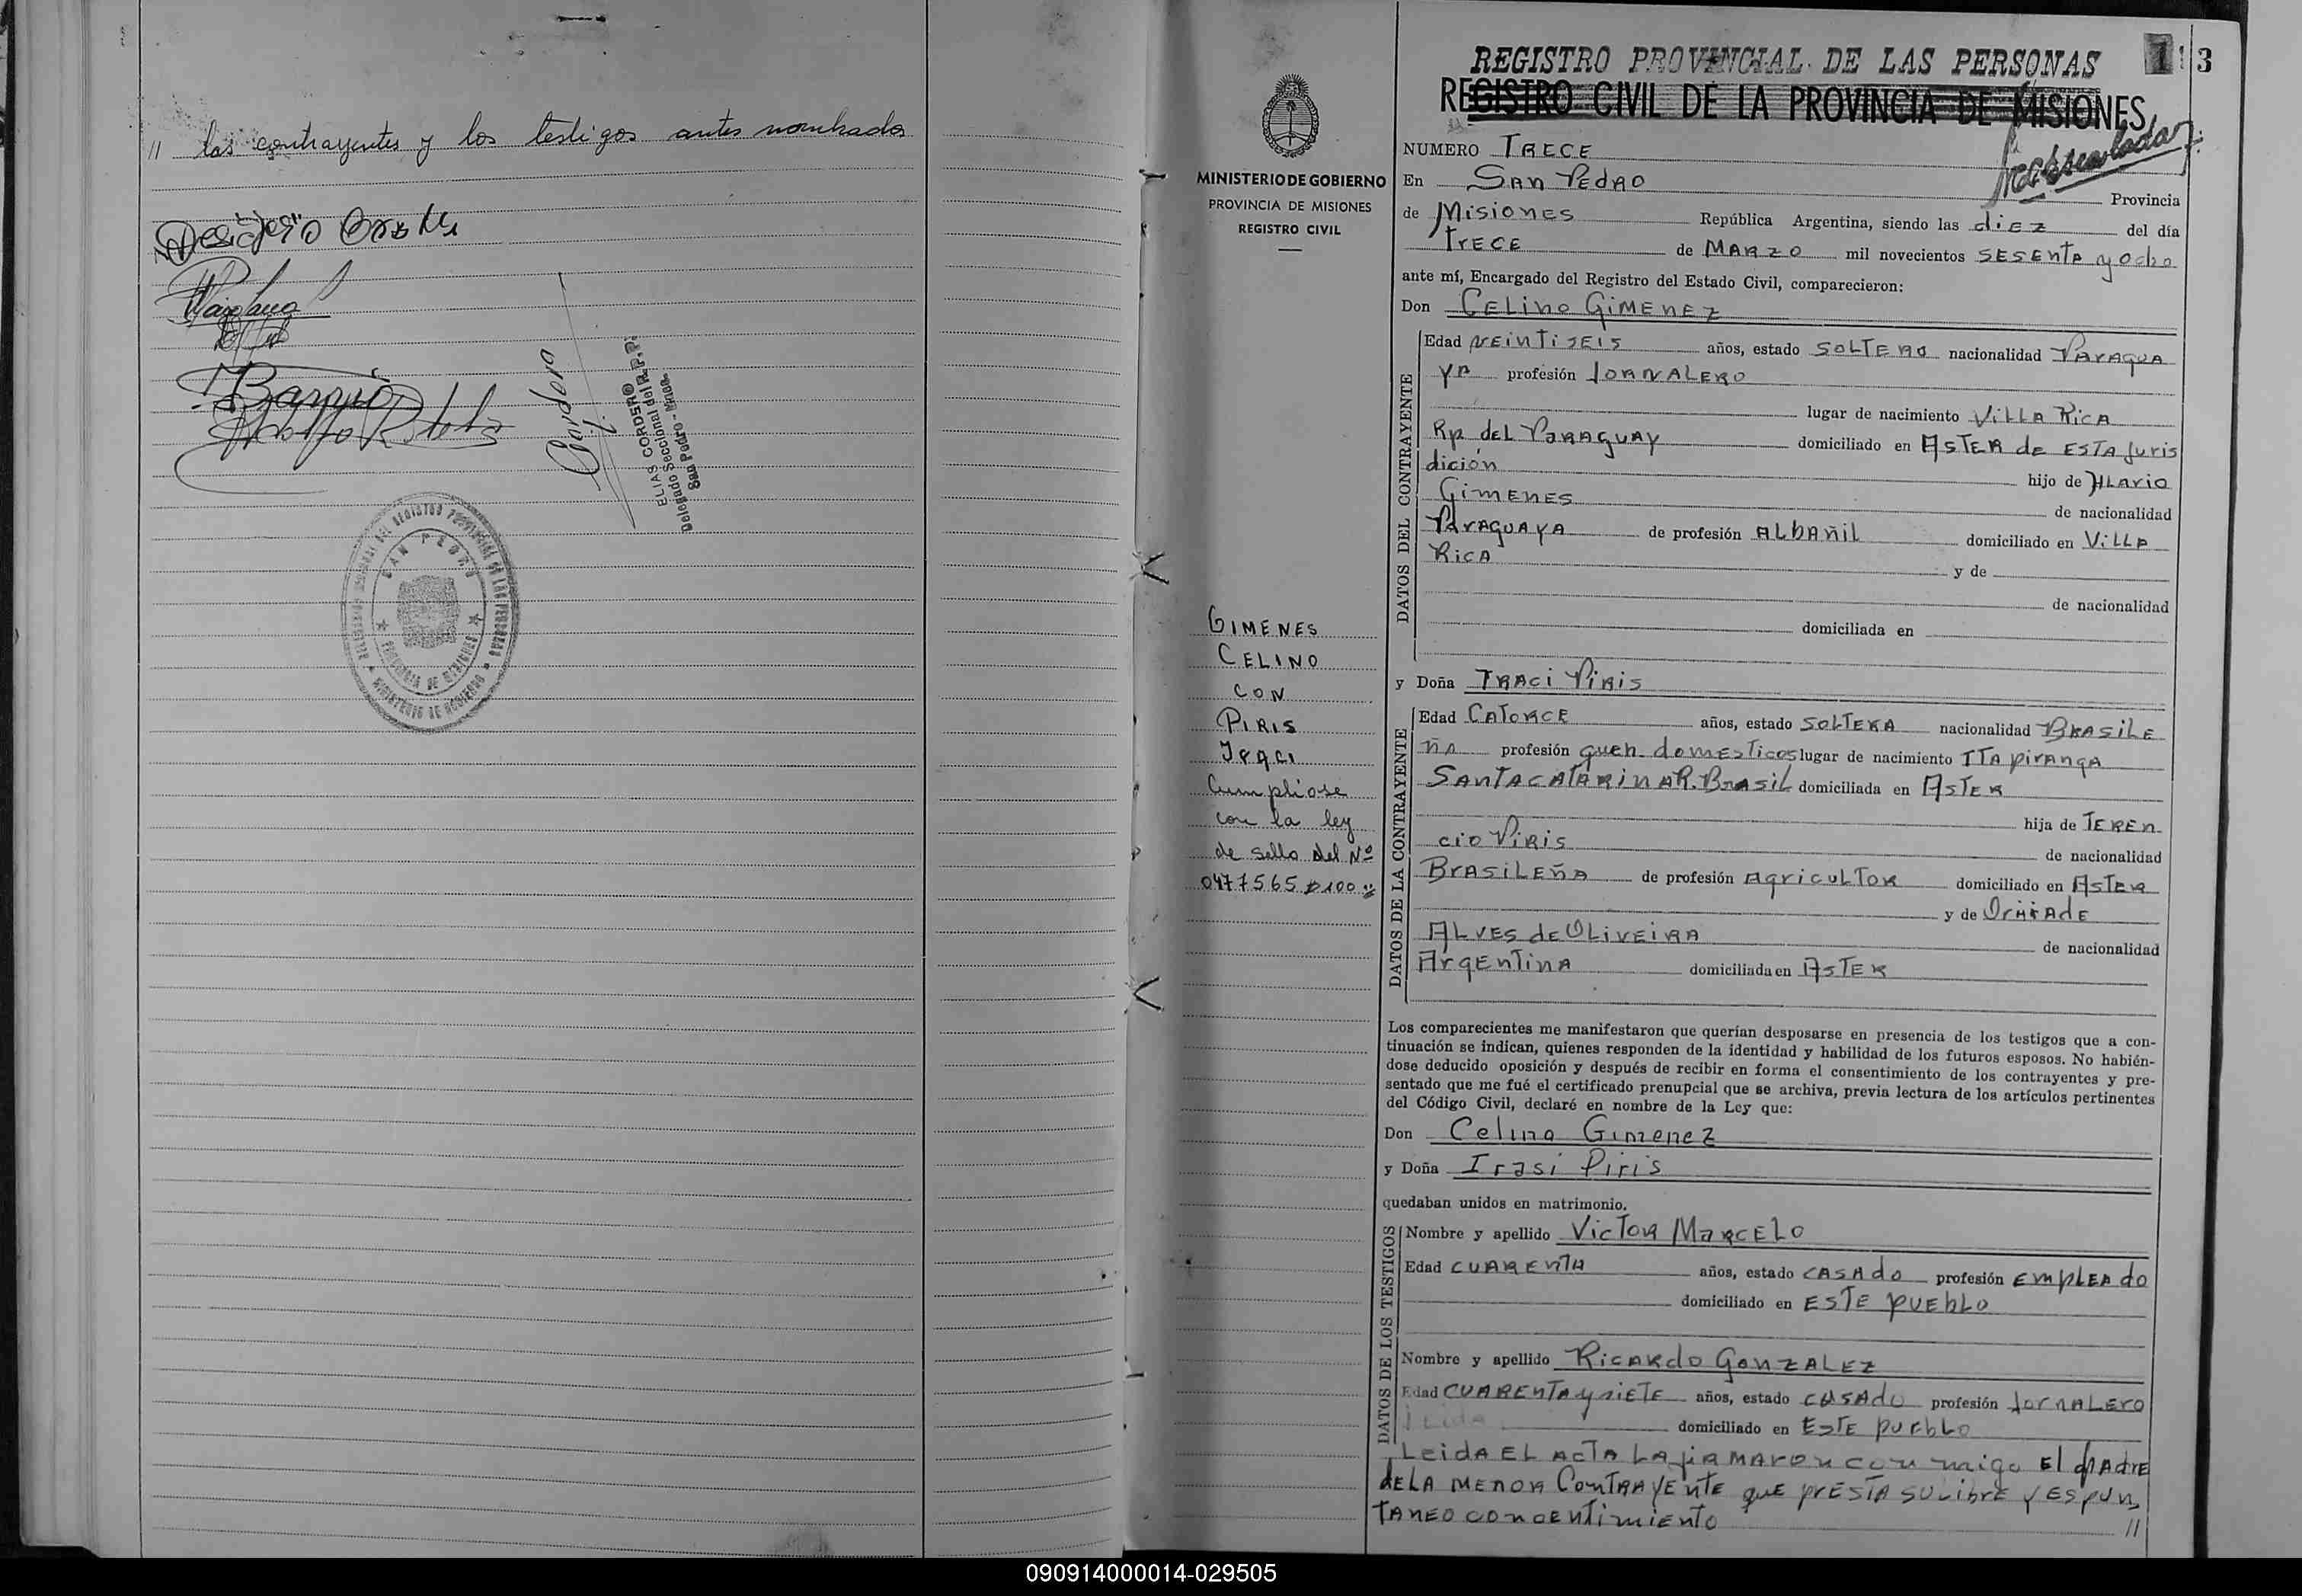 // los contrayentes y los testigos antes nombrados
Cordero
ELIAS CORDERO
Delegado Seccional del R.P.P.
San Pedro - Mnes.
SAN PEDRO
PROVINCIA DE MISIONES
MINISTERIO DE GOBIERNO
MINISTERIO DE GOBIERNO
PROVINCIA DE MISIONES
REGISTRO CIVIL
GIMENES
CELINO
CON
PIRIS
IRACI
Cumpliose
con la ley
de sello del Nº
0477565 $100
REGISTRO PROVINCIAL DE LAS PERSONAS
113
REGISTRO CIVIL DE LA PROVINCIA DE MISIONES
NUMERO TRECE
En SAN PEDRO
Provincia
de Misiones República Argentina, siendo las diEZ del día
TrECE de MARZO mil novecientos SESENTA y Ocho
ante mí, Encargado del Registro del Estado Civil, comparecieron:
Don CELino GiMENEZ
DATOS DEL CONTRAYENTE
Edad VEINTiSEIS años, estado SOLTERO nacionalidad PARAGUA
YA profesión JORNALERO
lugar de nacimiento ViLLA RiCA
Rp. dEL PARAGUAY domiciliado en ASTER dE ESTA Juris
dición hijo de HLArio
GimENES de nacionalidad
PArAGUAYA de profesión ALbAÑiL domiciliado en ViLLA
RiCA y de
de nacionalidad
domiciliada en
y Doña IRACi PiRis
DATOS DE LA CONTRAYENTE
Edad CATORCE años, estado SOLTERA nacionalidad BRASiLE
ÑA profesión queh. domESTicos lugar de nacimiento ITApirANgA
SANTACATARINA R. BrASiL domiciliada en ASTER
hija de TEREn
cio PiRis de nacionalidad
BrASiLEÑA de profesión AgricuLTOR domiciliado en ASTER
y de
ALVES dE OLiVEiRA de nacionalidad
ArgENTinA domiciliada en ASTER
Los comparecientes me manifestaron que querían desposarse en presencia de los testigos que a con-
tinuación se indican, quienes responden de la identidad y habilidad de los futuros esposos. No habién-
dose deducido oposición y después de recibir en forma el consentimiento de los contrayentes y pre-
sentado que me fué el certificado prenupcial que se archiva, previa lectura de los artículos pertinentes
del Código Civil, declaré en nombre de la Ley que:
Don Celino Gimenez
y Doña Irasi Piris
quedaban unidos en matrimonio.
DATOS DE LOS TESTIGOS
Nombre y apellido VicTOR MARCELO
Edad CUARENTA años, estado CASAdo profesión EmpLEAdo
domiciliado en ESTE pUEbLO
Nombre y apellido RicARdo GONZALEZ
Edad CUARENTA y siETE años, estado CASAdo profesión JornALEro
domiciliado en ESTE pUEbLO
LEidA EL ACTA LA firMARON con migo El pAdrE
dE LA MENOR CONTRAYENTE quE prESTA SU LibrE y ESpon
TANEO CONCENTimiENTO //
090914000014-029505